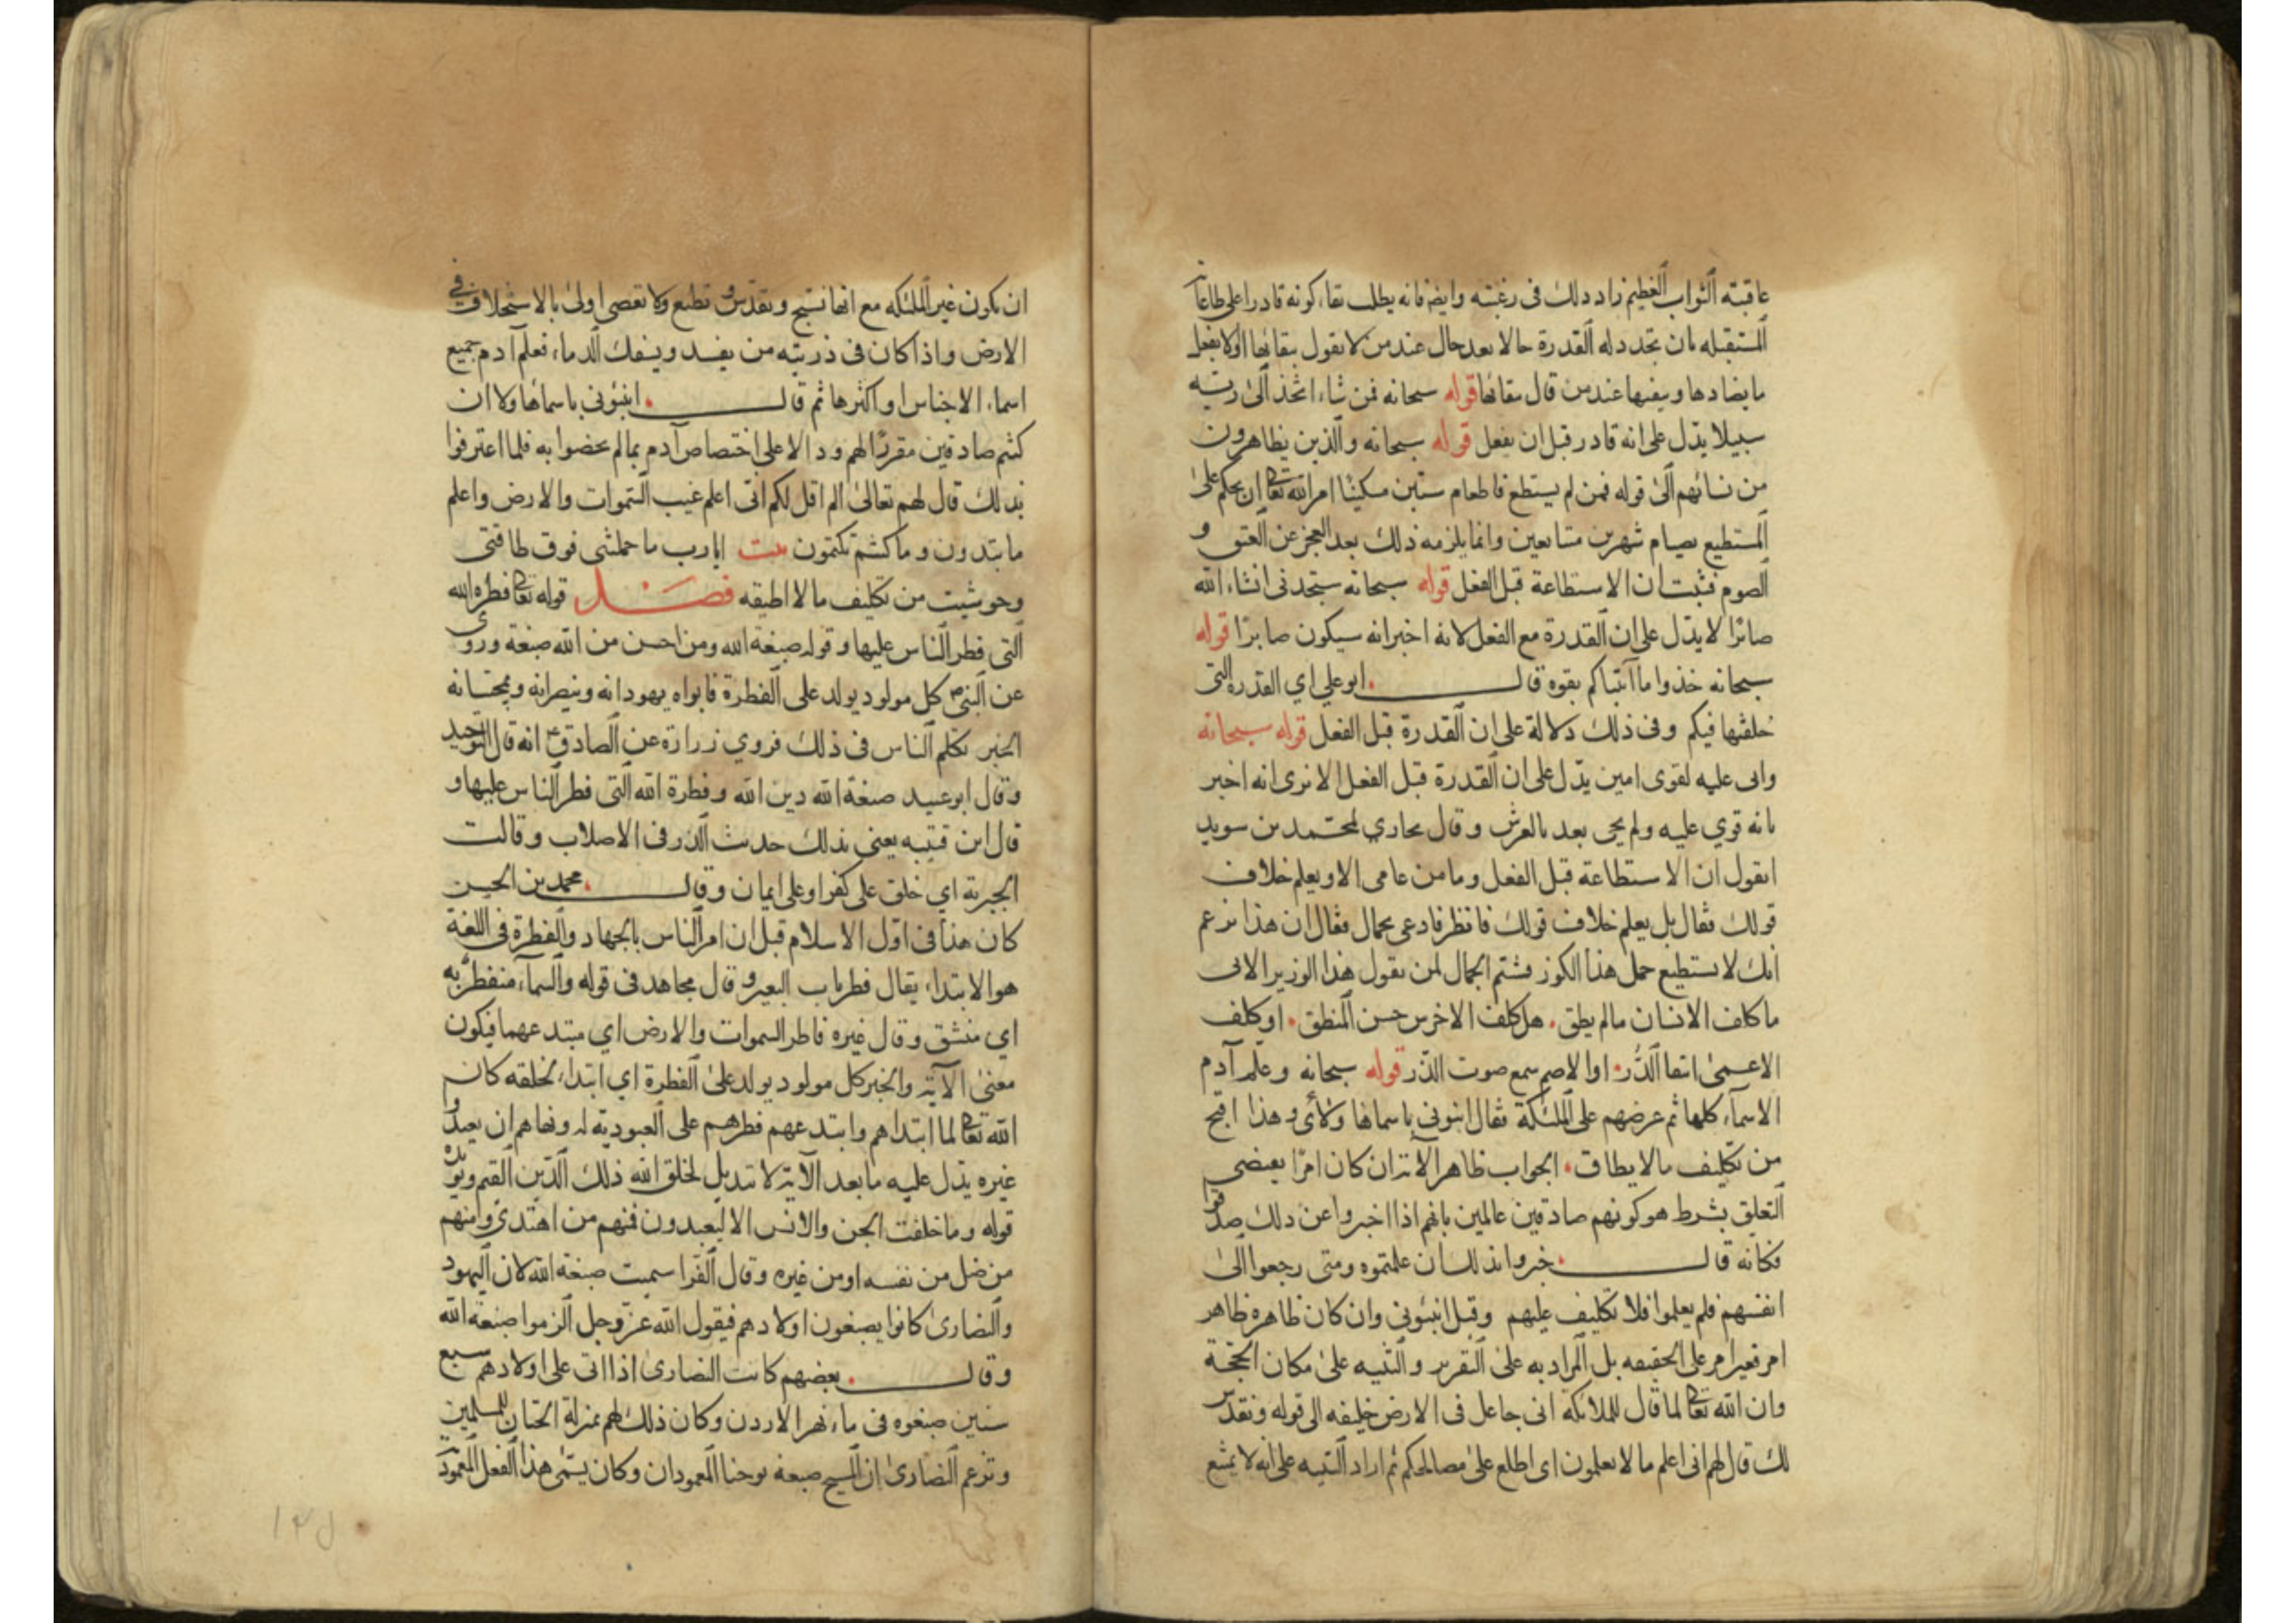 عاقبته الثواب العظيم زاد ذلك فى رغبته وايضا فانه يطلب بقاء كونه قادرا على طاعاته
المستقبله بان تجدد له القدرة حالا بعد حال عند من لا يقول ببقائها او لا يفعل
ما يضادها ويفنيها عند من قال ببقائها قوله سبحانه فمن شاء اتخذ الى ربه
سبيلا يدل على انه قادر قبل ان يفعل قوله سبحانه والذين يظاهرون
من نسائهم الى قوله فمن لم يستطع فاطعام ستين مسكينا امر الله تعالى ان يحكم على
المستطيع بصيام شهرين متتابعين وانما يلزمه ذلك بعد العجز عن العتق و
الصوم فثبت ان الاستطاعة قبل الفعل قوله سبحانه ستجدنى انشاء الله
صابرا لا يدل على ان القدرة مع الفعل لانه اخبر انه سيكون صابرا قوله
سبحانه خذوا ما آتيناكم بقوه قال ابو علي اي القدرة التى
خلقتها فيكم وفى ذلك دلالة على ان القدرة قبل الفعل قوله سبحانه
وانى عليه لقوى امين يدل على ان القدرة قبل الفعل الا نرى انه اخبر
بانه قوي عليه ولم يجى بعد بالعرش وقال بحاري لمحمد بن سويد
اتقول ان الاستطاعة قبل الفعل وما من عامى الا ويعلم خلاف
قولك فقال بل يعلم خلاف قولك فانظر فادعى بحمال فقال ان هذا نزعم
انك لا تستطيع حمل هذا الكوز فشتم الجمال لمن يقول هذا الوزير الابى
ما كلف الانسان مالم يطق . هل كلف الاخرس حسن المنطق . او كلف
الاعمى انتقا الدُّر . او الاصم سمع صوت الذر قوله سبحانه وعلم آدم
الاسماء كلها ثم عرضهم على الملئكة فقال انبونى باسماء هؤلاء وهذا اقبح
من تكليف ما لا يطاق . الجواب ظاهر الآية ان كان امرا يقتضى
التعلق بشرط هو كونهم صادقين عالمين بانهم اذا اخبروا عن ذلك صدقوا
فكانه قال خبروا بذلك ان علمتموه ومتى رجعوا الى
انفسهم فلم يعلموا فلا تكليف عليهم وقيل انبئونى وان كان ظاهره ظاهر
امر فغير امر على الحقيقه بل المراد به على التقرير والتنبيه على مكان الحجة
وان الله تعالى لما قال للملائكه انى جاعل فى الارض خليفه الى قوله ونقدس
لك قال لهم انى اعلم ما لا تعلمون اى اطلع على مصالحكم ثم اراد التنبيه على انه لا يمتنع
ان يكون غير الملئكه مع انها تسبح وتقدس و تطيع ولا تعصى اولى بالاستخلاف فى
الارض واذا كان فى ذريته من يفسد ويسفك الدماء فعلم آدم جميع
اسماء الاجناس او اكثرها ثم قال . انبئونى باسماء هاولا ان
كنتم صادقين مقررا لهم ودالا على اختصاص آدم بما لم يخصوا به فلما اعترفوا
بذلك قال لهم تعالى الم اقل لكم انى اعلم غيب السموات والارض واعلم
ما تبدون وما كنتم تكتمون بيت ايا رب ما حملتنى فوق طاقتى
وحوشيت من تكليف مالا اطيقه فصل قوله تعالى فطرة الله
التى فطر الناس عليها وقوله صبغة الله ومن احسن من الله صبغة وروى
عن النبى ص كل مولود يولد على الفطرة فابواه يهودانه وينصرانه ويمجسانه
الخبر تكلم الناس فى ذلك فروي زرارة عن الصادق ع انه قال التوحيد
وقال ابو عبيد صبغة الله دين الله وفطرة الله التى فطر الناس عليها و
قال ابن قتيبه يعنى بذلك حديث الذر فى الاصلاب وقالت
الجبرية اي خلق على كفر او على ايمان وقال . محمد بن الحسن
كان هذا فى اول الاسلام قبل ان امر الناس بالجهاد والفطرة فى اللغة
هو الابتداء يقال فطر ناب البعير و قال مجاهد فى قوله والسماء منفطر به
اي منشق وقال غيره فاطر السموات والارض اي مبتدعهما فيكون
معنى الآية والخبر كل مولود يولد على الفطرة اي ابتداء لخلقه كان
الله تعالى لما ابتداهم وابتدعهم فطرهم على العبودية له ونهاهم ان يعبدوا
غيره يدل عليه ما بعد الآية لا تبديل لخلق الله ذلك الدين القيم ويؤيده
قوله وما خلقت الجن والانس الا ليعبدون فمنهم من اهتدى ومنهم
من ضل من نفسه او من غيره وقال الفرا سميت صبغة الله لان اليهود
والنصارى كانوا يصبغون اولادهم فيقول الله عز وجل الزموا صبغة الله
وقال . بعضهم كانت النصارى اذا اتى على اولادهم سبع
سنين صبغوه فى ماء نهر الاردن وكان ذلك لهم بمنزلة الختان للمسلمين
وتزعم النصارى ان المسيح صبغه يوحنا المعمودان وكان يسمى هذا الفعل المعمودية